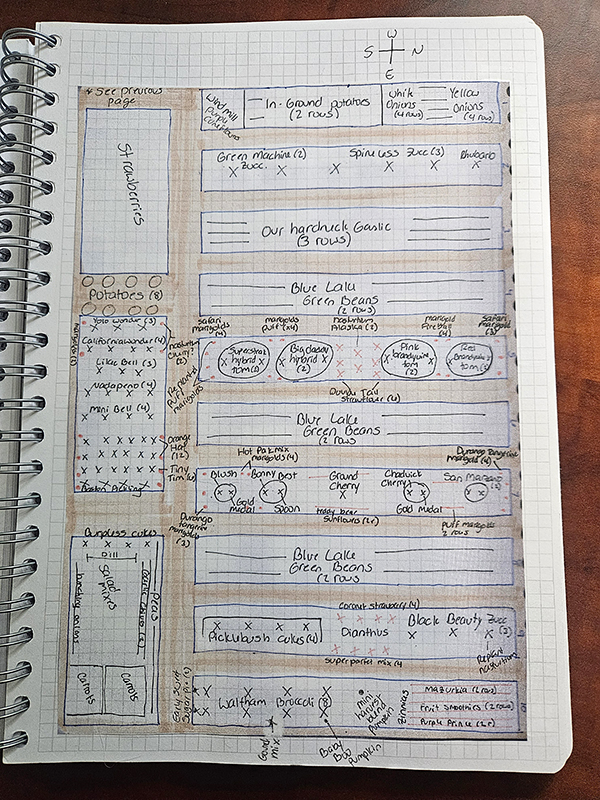 W
S N
E
* See previous
page
Strawberries
Potatoes (8)
Yolo Wonder (3)
California wonder (4)
Lilac Bell (3)
Nadapeno (4)
Mini Bell (4)
Orange
Hat
(12)
Tiny
Tim (6)
Boston Pickling
Burpless cukes
Dill
Salad
mixes
Peas
bunching onions
Carrots
Carrots
In-Ground potatoes
(2 rows)
White
Onions
(4 rows)
Yellow
Onions
(4 row)
Green Machine (2)
Zucc.
Spineless Zucc (3)
Rhubarb
Our hardneck Garlic
(3 rows)
Blue Lake
Green Beans
(2 rows)
Safari
marigolds
(4)
marigolds
Puff (x4)
nasturtium
Alaska (2)
marigold
Fireball
(4)
Safari
marigold
(3)
Big daddy
hybrid
tom (2)
Pink
brandywine
tom
(2)
Strawflower (4)
Blue Lake
Green Beans
(2 rows
Hot Pak mix
marigolds (4)
Durango Tangerine
marigold (4)
Blush
Bonny Best
Ground
Cherry
X
Chadwick
Cherry
San Marzano
(2)
Gold
medal
Spoon
teddy bear
sunflowers (2r)
Gold medal
Puff marigolds
(2 rows)
Durango
tangerine
marigolds
(3)
Blue Lake
Green Beans
(2 rows
Coconut strawberry (4)
Picklebush cukes (4)
Dianthus
Black Beauty Zucc
(3)
Super parfait mix (4
Early Scarlet
Waltham Broccoli (8)
mini
harvest
blend
pumpkin
Zinnias
Mazurkia (2 rows)
Fruit Smoothies (2 rows)
Purple Prince (2 r)
Gourd
mix
Baby
Boo
Pumpkin